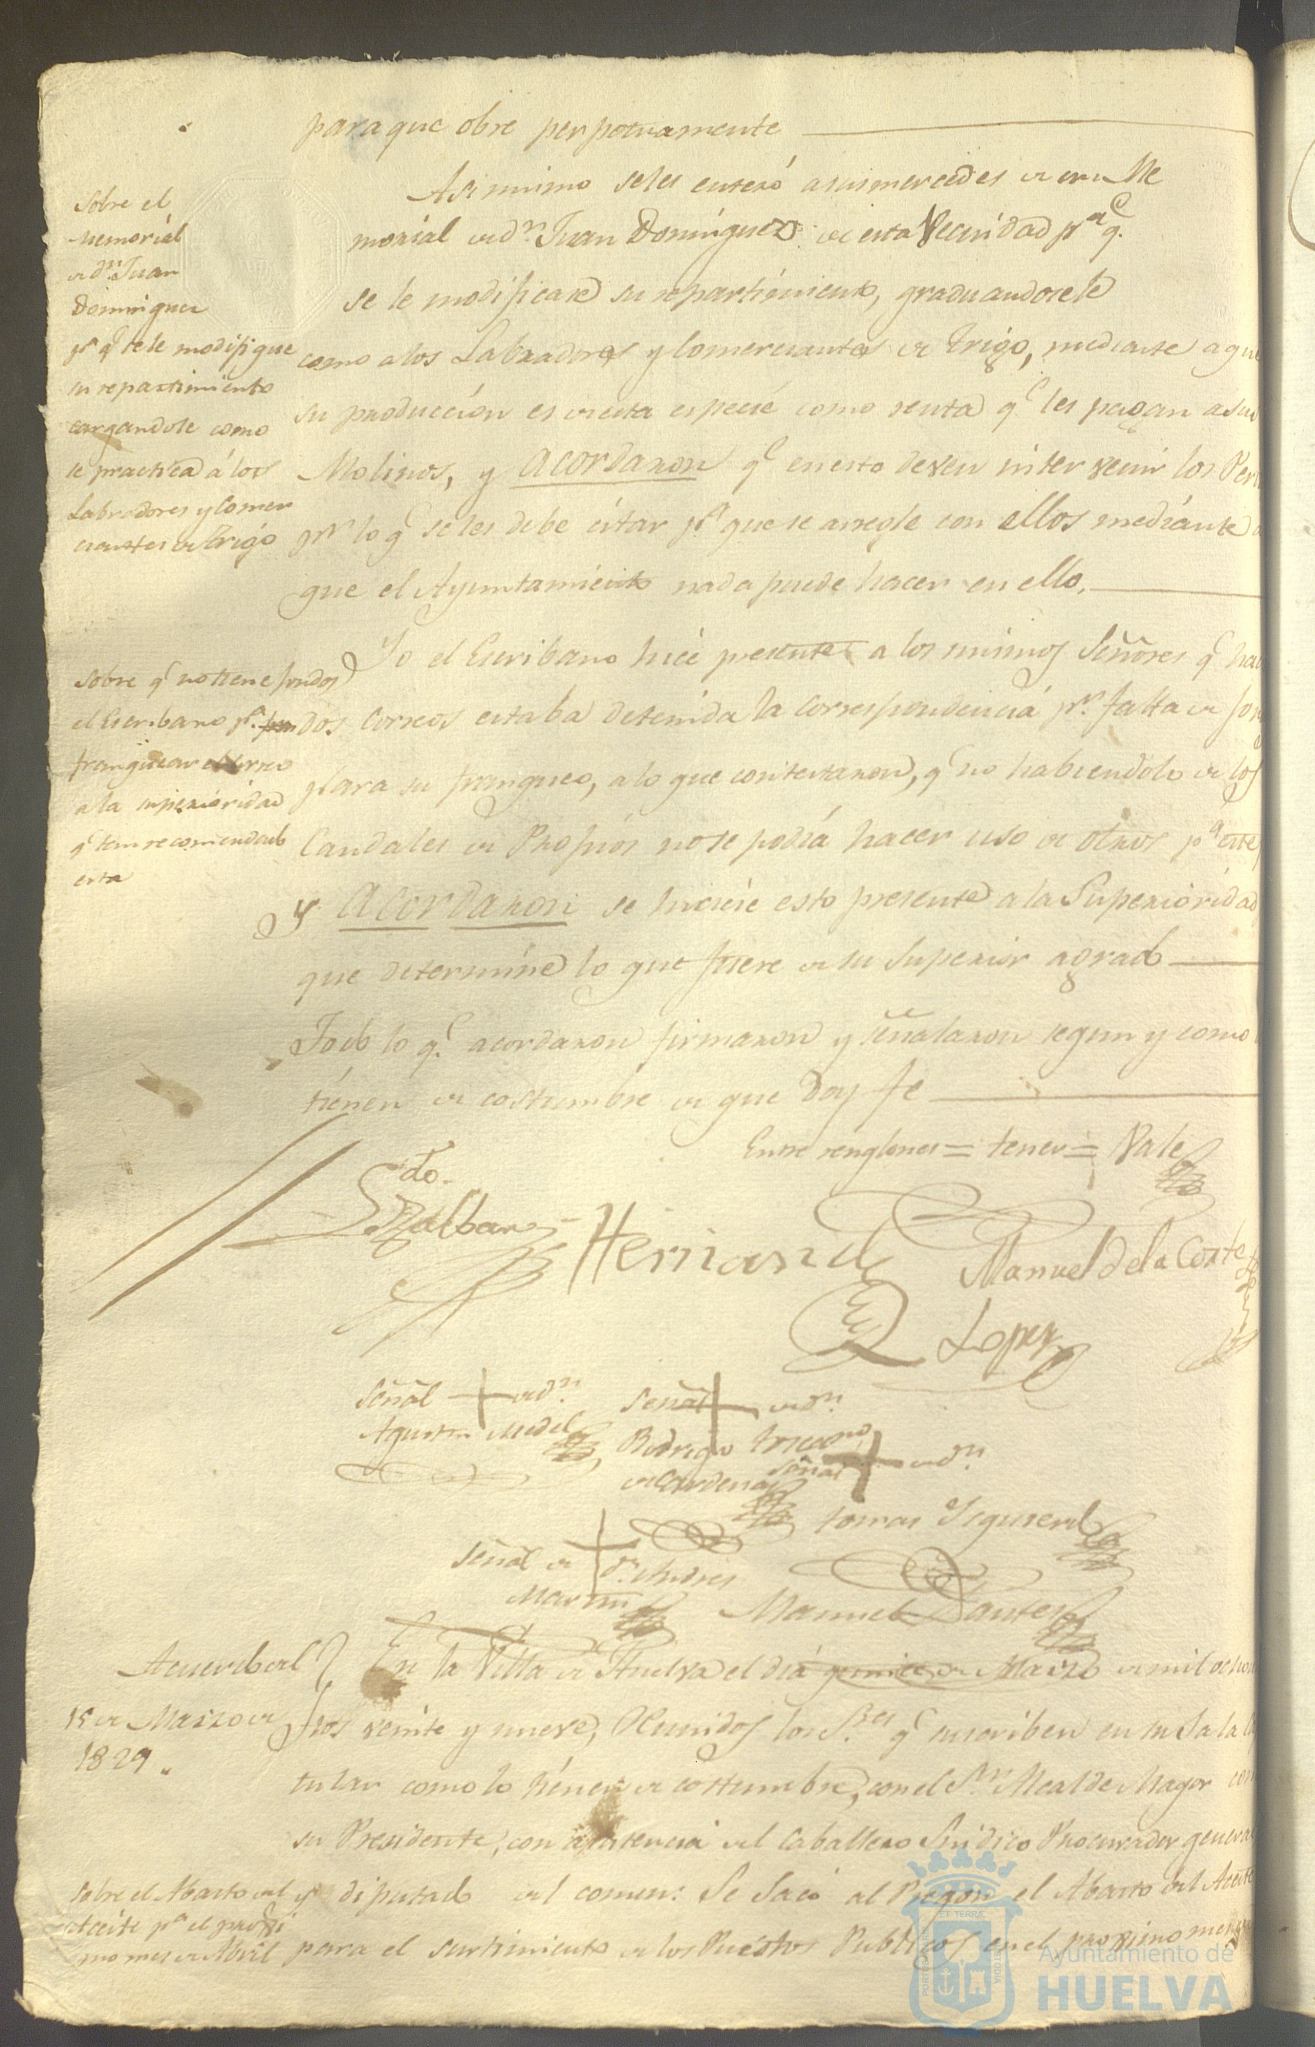 para que obre perpetuamente
Sobre el
Memorial
de dn. Juan
Dominguez
pr. q.e se le modifique
su repartimiento
cargandole como
se practica á los
Labradores y Comer
ciantes de Trigo
Asi mismo se les enteró a sus mercedes de un Me
morial de dn. Juan Dominguez de esta Vecindad pa. q.e
se le modificase su repartimiento, graduandosele
como a los Labradores y Comerciantes de Trigo, mediante a que
su producción es de esta especie como renta q.e les pagan a sus
Molinos, y Acordaron q.e en esto deven intervenir los
pr. lo q.e se les debe citar pa. que se arregle con ellos mediante a
que el Ayuntamiento nada puede hacer en ello.
Sobre q.e no tiene fondos
el Escribano pa.
franquear el correo
a la superioridad
q.e
esta
Yo el Escribano hice presente a los mismos Señores q.e
dos Correos estaba detenida la correspondencia pr. falta de
para su franqueo, a lo que contestaron, q.e no habiendolo de los
Caudales de Propios no se podía hacer uso de otros pa. este
y Acordaron se hiciese esto presente a la Superioridad
que determine lo que fuere de su superior agrado
Todo lo q.e acordaron firmaron y señalaron segun y como
tienen de costumbre de que Doy fe
Entre renglones = tener = Vale
Hernand
Manuel de la Corte
Lopez
Señal de dn.
Agustin Medel
Señal de dn.
Rodrigo
de Cardenas
Señal de dn.
tomas
Señal de dn. Andres
Martin
Manuel
Acuerdo del
15 de Marzo de
1829.
En la Villa de Huelva el día quince de Marzo de mil ocho
tos veinte y nueve, Reunidos los S.res q.e suscriben en su Sala
tular como lo tienen de costumbre, con el S.or Alcalde Mayor
su Presidente, con asistencia del Caballero Sindico Procurador general
Sobre el Abasto del
Aceite pa. el proxi
mo mes de Abril
y diputado del comun: Se Sacó al Pregon el Abasto del Aceite
para el surtimiento de los Puestos Publicos en el proximo mes
Ayuntamiento de
HUELVA